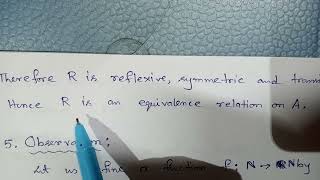 Therefore R is reflexive, symmetric and
Hence R is an equivalence relation on A.
5. Observation:
Let us a function f: N → N by